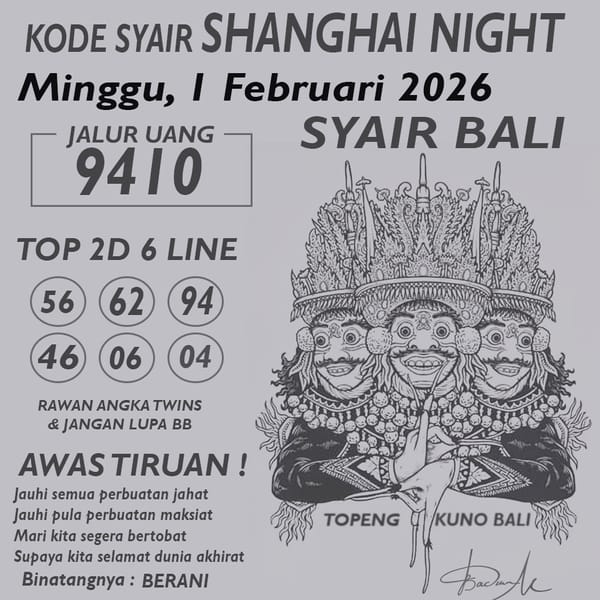 KODE SYAIR SHANGHAI NIGHT
Minggu, 1 Februari 2026
SYAIR BALI
JALUR UANG
9410
TOP 2D 6 LINE
56 62 94
46 06 04
RAWAN ANGKA TWINS
& JANGAN LUPA BB
AWAS TIRUAN !
Jauhi semua perbuatan jahat
Jauhi pula perbuatan maksiat
Mari kita segera bertobat
Supaya kita selamat dunia akhirat
Binatangnya : BERANI
TOPENG KUNO BALI